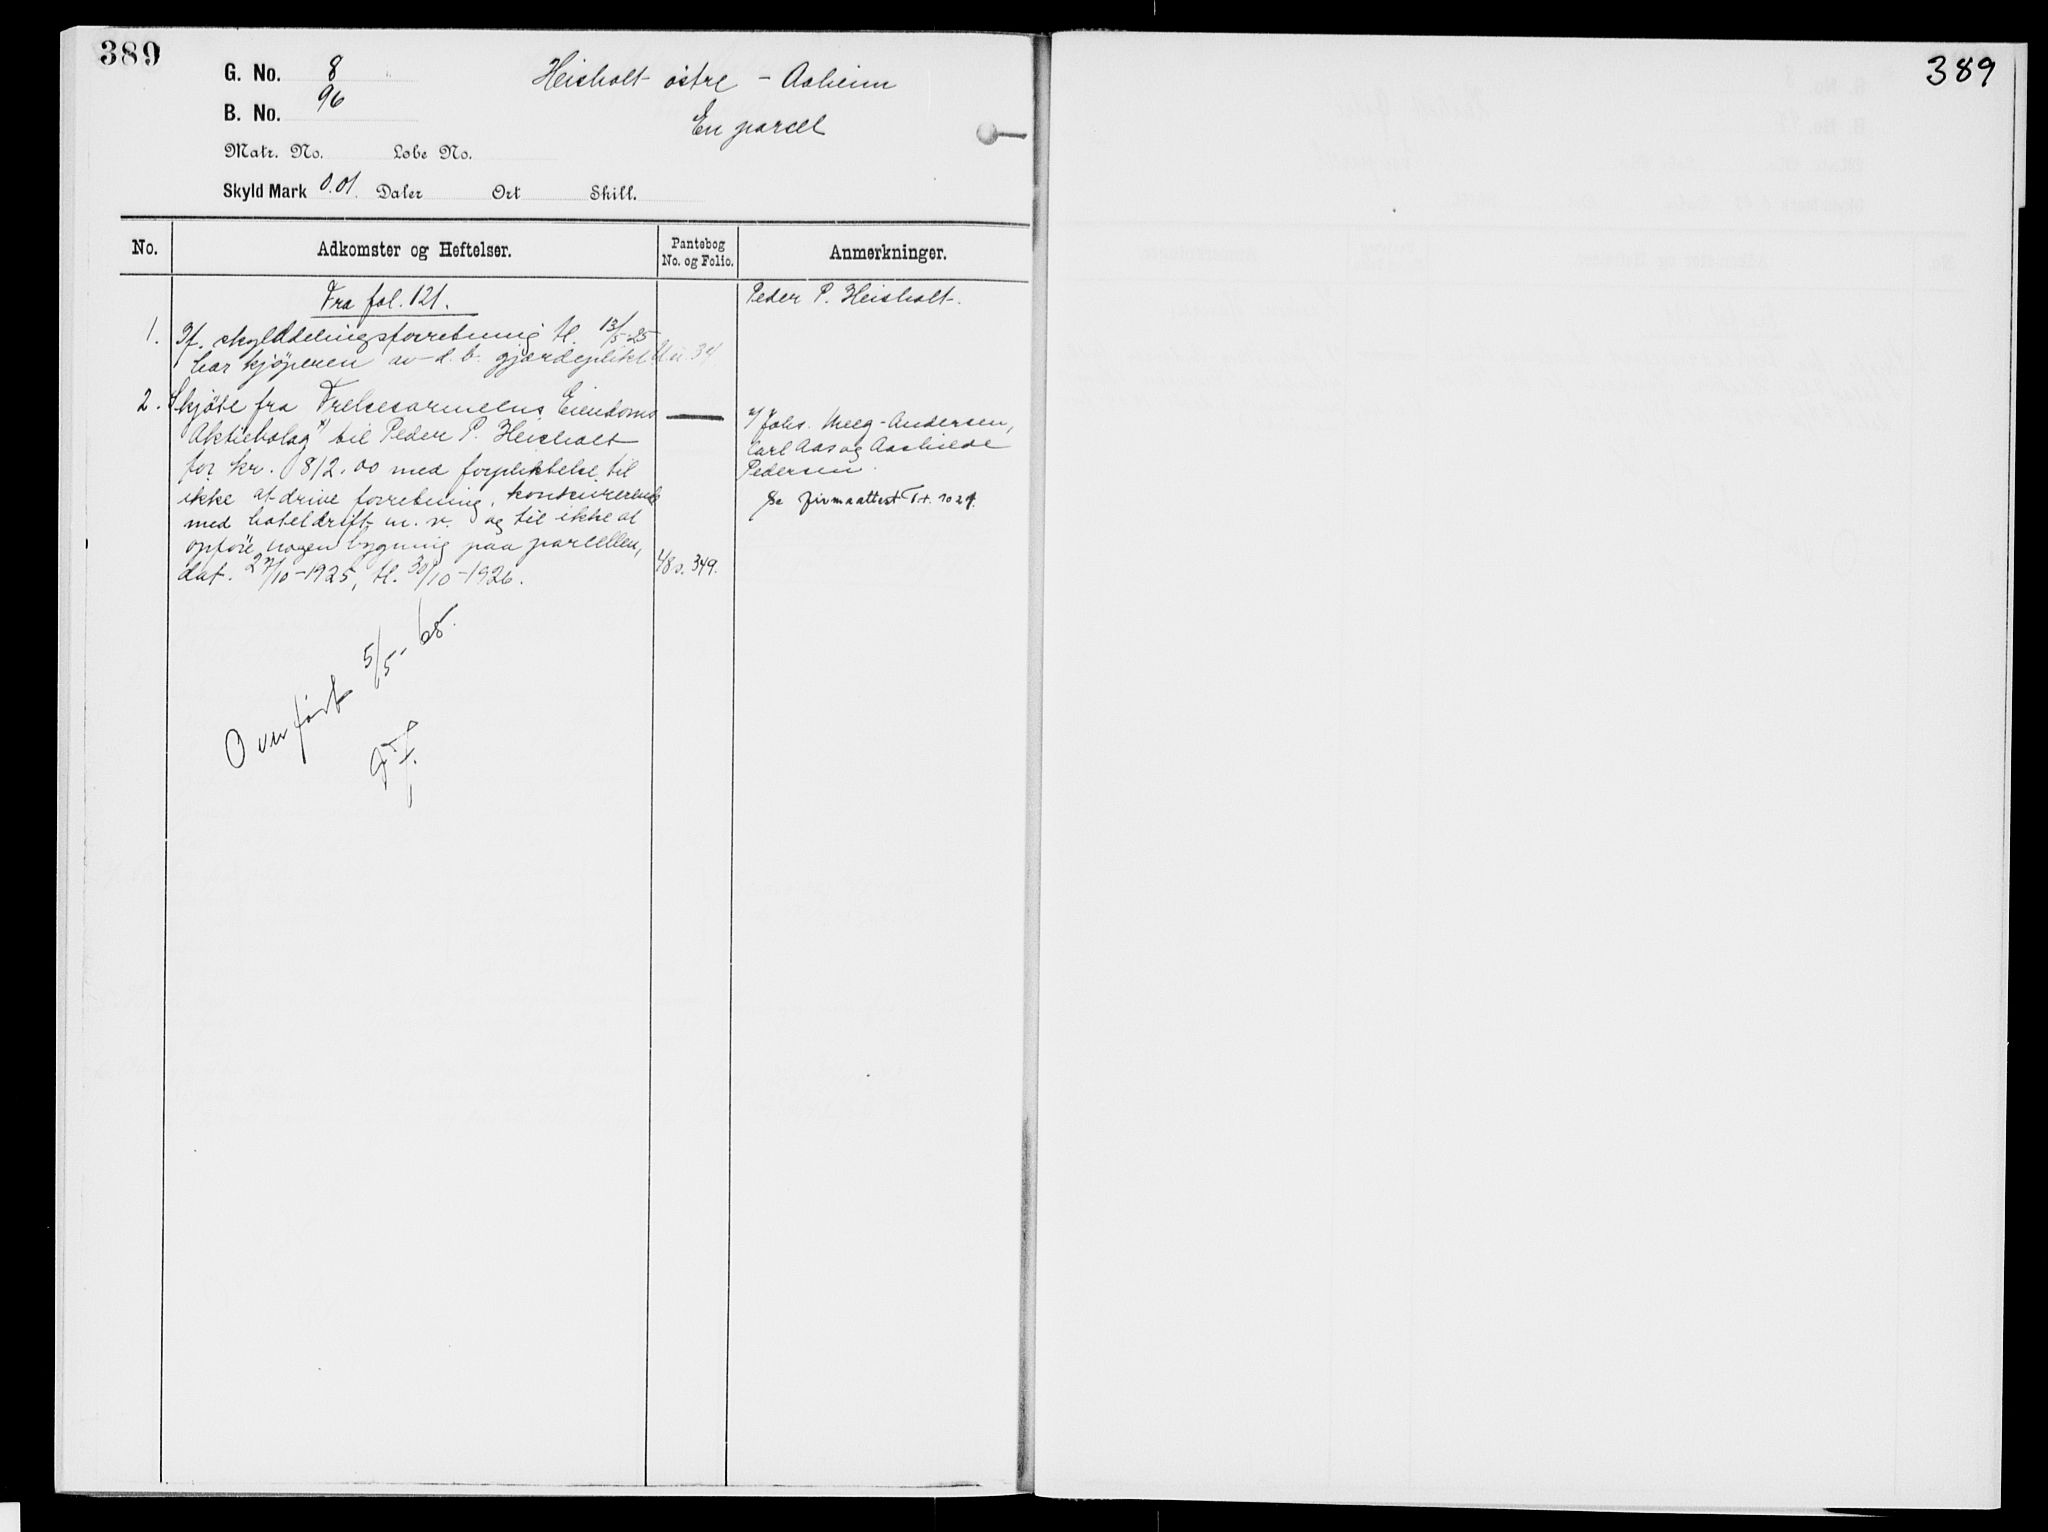 389
G. No. 8
B. No. 96
Matr. No. Løbe No.
Skyld Mark 0.01. Daler Ort Skill.
Heisholt østre - Aaheim
En parcel
No.
Adkomster og Heftelser.
Pantebog No. og Folio.
Anmerkninger.
Fra fol. 121.
Peder P. Heisholt.
1. If. skylddelingsforretning tl. 13/5-25
har kjøperen av d. b. gjerdeplikt 34
2. Skjøte fra Frelsesarmeens Eiendoms
Aktiebolag x) til Peder P. Heisholt
for kr. 812.00 med forpliktelse til
ikke at drive forretning, konkurrerende
med hoteldrift m. v. og til ikke at
opføre nogen bygning paa parcellen,
dat. 27/10-1925, tl. 30/10-1926.
48 s. 349.
x) Johs. Meeg-Andersen,
Carl Aas og Aashilde
Pedersen.
Se firmaattest
Overført 5/5-65.
389